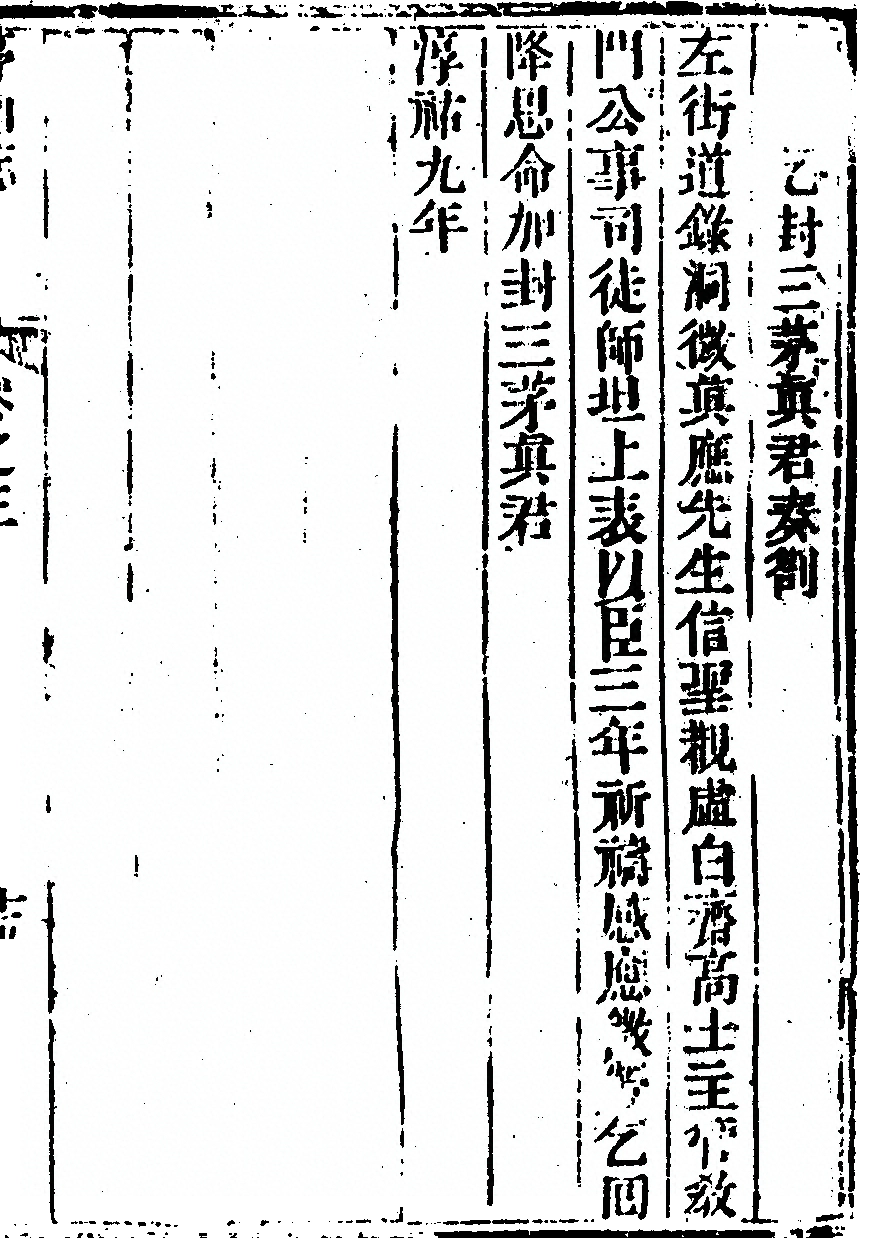 乞封三茅眞君奏劄
左街道錄洞微眞應先生信聖觀虛白齋高士主管敎
門公事司徒師坦上表以臣三年祈禱感應乞回
降恩命加封三茅眞君
淳祐九年